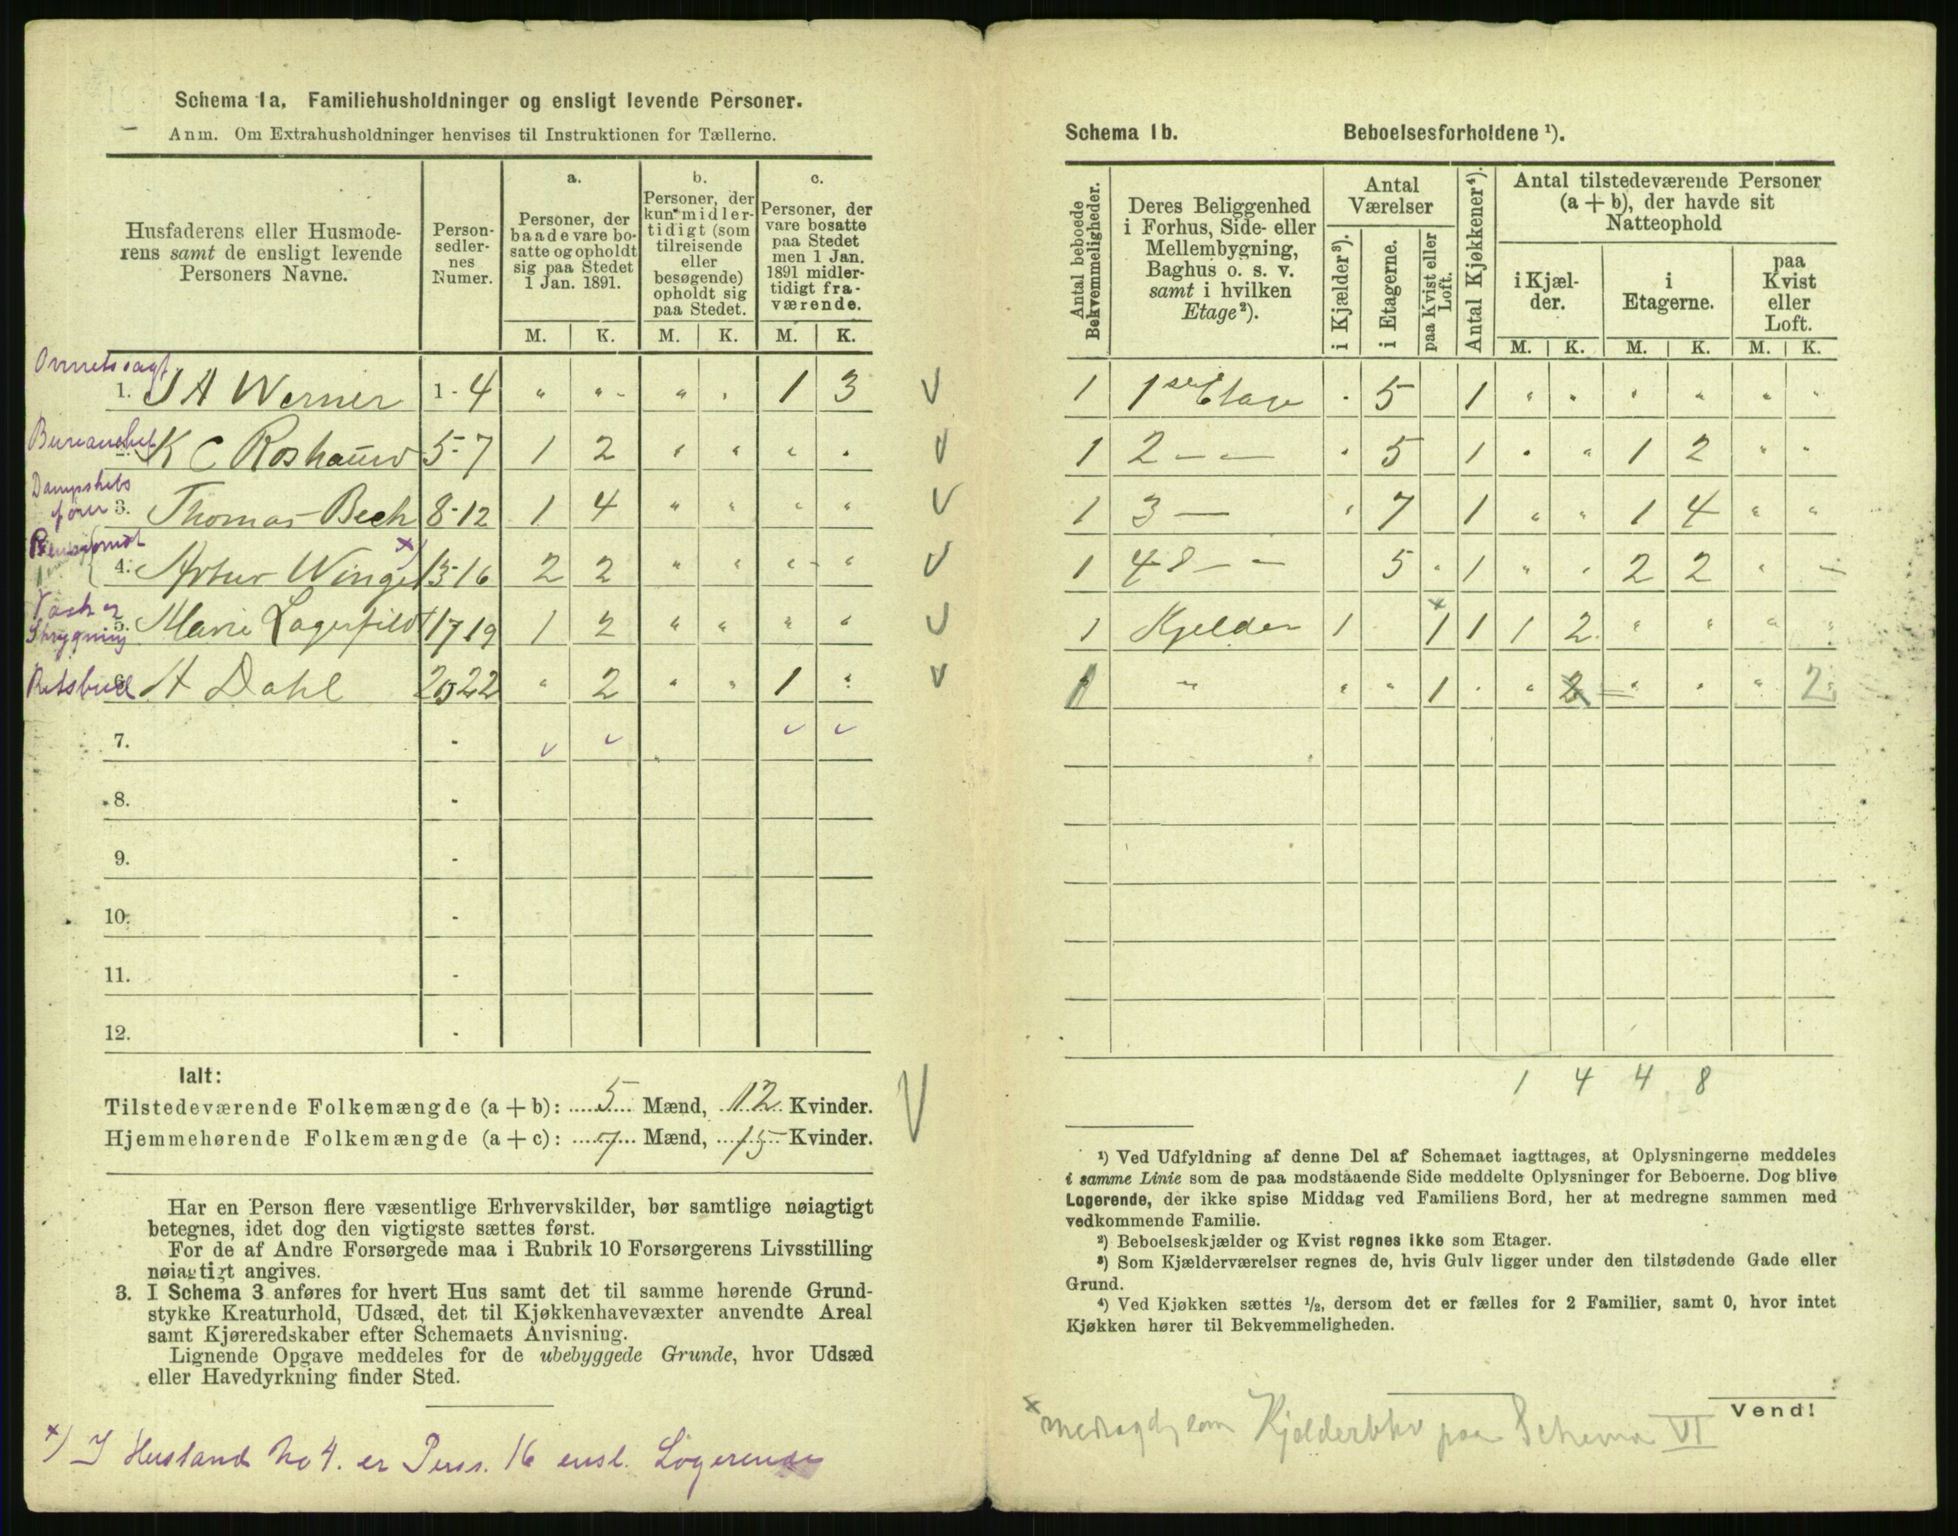 Schema 1a. Familiehusholdninger og ensligt levende Personer.
Anm. Om Extrahusholdninger henvises til Instruktionen for Tællerne.
Husfaderens eller Husmoderens samt de ensligt levende Personers Navne.
Personsedlernes Numer.
a.
Personer, der baade vare bosatte og opholdt sig paa Stedet 1 Jan. 1891.
b.
Personer, der kun midlertidigt (som tilreisende eller besøgende) opholdt sig paa Stedet.
c.
Personer, der vare bosatte paa Stedet men 1 Jan. 1891 midlertidigt fraværende.
M. K. M. K. M. K.
1. J A Werner 1-4 " " " . 1 3
K C Roshauw 5-7 1 2 " " " .
Dampskibs
fører 3. Thomas Bech 8-12 1 4 " " " "
4. Artur Winge x) 13-16 2 2 " " " "
Vask og
Strygning 5. Marie Lagerfeldt 17-19 1 2 " " " "
6. A Dahl 20-22 " 2 " " 1 "
7.
8.
9.
10.
11.
12.
Ialt:
Tilstedeværende Folkemængde (a + b): 5 Mænd, 12 Kvinder.
Hjemmehørende Folkemængde (a + c): 7 Mænd, 15 Kvinder.
Har en Person flere væsentlige Erhvervskilder, bør samtlige nøiagtigt
betegnes, idet dog den vigtigste sættes først.
For de af Andre Forsørgede maa i Rubrik 10 Forsørgerens Livsstilling
nøiagtigt angives.
3. I Schema 3 anføres for hvert Hus samt det til samme hørende Grund-
stykke Kreaturhold, Udsæd, det til Kjøkkenhavevæxter anvendte Areal
samt Kjøreredskaber efter Schemaets Anvisning.
Lignende Opgave meddeles for de ubebyggede Grunde, hvor Udsæd
eller Havedyrkning finder Sted.
x) I Husstand No 4. er Pers. 16 ensl. Logerende
Schema 1b. Beboelsesforholdene ¹).
Antal beboede Bekvemmeligheder.
Deres Beliggenhed i Forhus, Side- eller Mellembygning, Baghus o. s. v. samt i hvilken Etage²).
Antal Værelser
i Kjælder³).
i Etagerne.
paa Kvist eller Loft.
Antal Kjøkkener⁴).
Antal tilstedeværende Personer (a + b), der havde sit Natteophold
i Kjælder.
i Etagerne.
paa Kvist eller Loft.
M. K. M. K. M. K.
1 1ste Etage . 5 1 " " " " " "
1 2 — — " 5 1 " " 1 2 " "
1 3 — " 7 1 " " 1 4 " "
1 4 — — 5 " 1 " " 2 2 " —
1 Kjelder 1 x 1 1 1 2 " " " "
1 " " " 1 " " 2 " " " 2
1 4 4 8
¹) Ved Udfyldning af denne Del af Schemaet iagttages, at Oplysningerne meddeles
i samme Linie som de paa modstaaende Side meddelte Oplysninger for Beboerne. Dog blive
Logerende, der ikke spise Middag ved Familiens Bord, her at medregne sammen med
vedkommende Familie.
²) Beboelseskjælder og Kvist regnes ikke som Etager.
³) Som Kjælderværelser regnes de, hvis Gulv ligger under den tilstødende Gade eller
Grund.
⁴) Ved Kjøkken sættes ½, dersom det er fælles for 2 Familier, samt 0, hvor intet
Kjøkken hører til Bekvemmeligheden.
Vend!
x som paa Schema VI